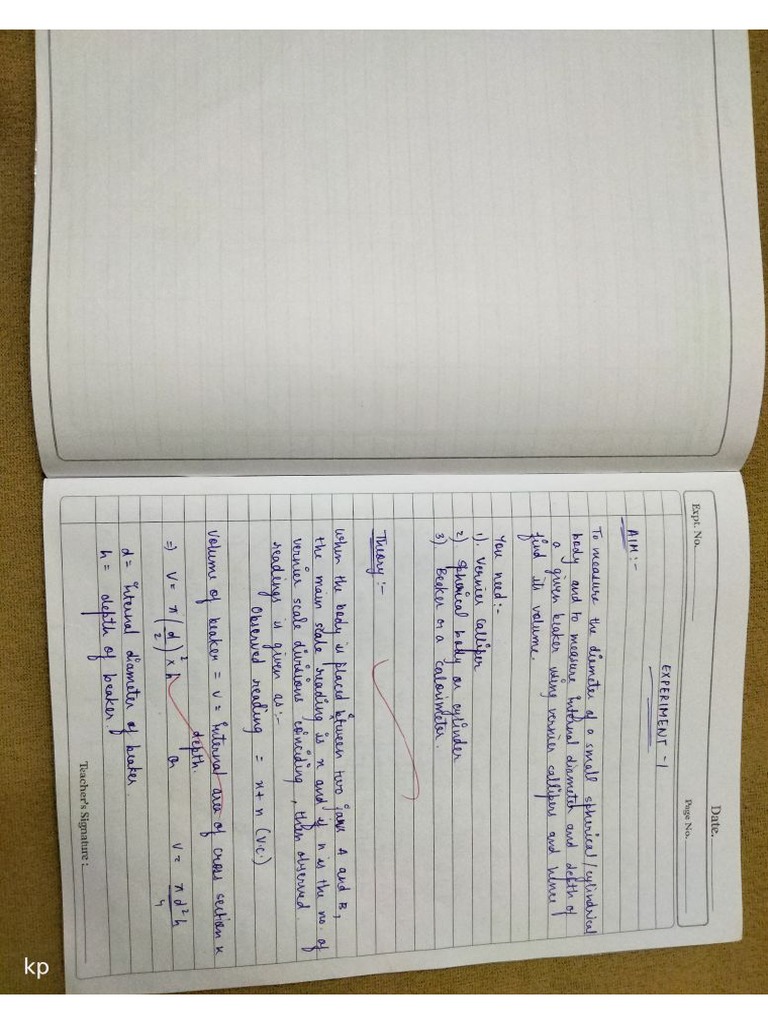 Date.
Expt. No.
Page No.
EXPERIMENT - 1
AIM :-
To measure the diameter of a small spherical/cylindrical
body and to measure internal diameter and depth of
a given beaker using vernier callipers and hence
find its volume.
You need :-
1). Vernier calliper
2) Spherical body or cylinder
3) Beaker or a calorimeter.
Theory :-
When the body is placed between two jaws A and B,
the main scale reading is x and if n is the no. of
vernier scale divisions coinciding, then observed
readings is given as :-
Observed reading = x + n (V.C.)
Volume of beaker = v = internal area of cross section x
depth.
=) V = π (d/2)² x h or V = πd²h/4
d = internal diameter of beaker.
h = depth of beaker
Teacher's Signature :
kp